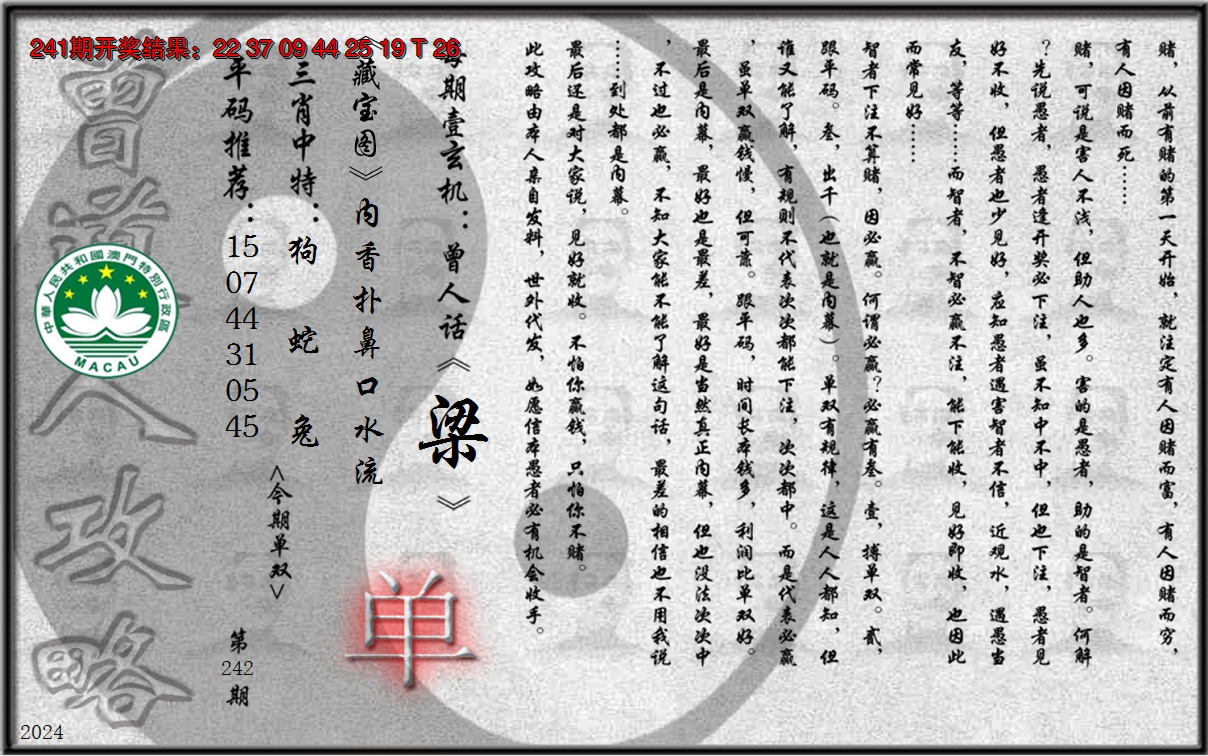 241期开奖结果：22 37 09 44 25 19 T 26
赌，从前有赌的第一天开始，就注定有人因赌而富，有人因赌而穷，
有人因赌而死……
赌，可说是害人不浅，但助人也多。害的是愚者，助的是智者。何解
？先说愚者，愚者逢开奖必下注，虽不知中不中，但也下注，愚者见
好不收，但愚者也少见好，应知愚者遇害智者不信，近观水，遇愚当
友，等等……而智者，不智必赢不注，能下能收，见好即收，也因此
而常见好……
智者下注不算赌，因必赢。何谓必赢？必赢有叁。壹，搏单双。贰，
跟平码。叁，出千（也就是内幕）。单双有规律，这是人人都知，但
谁又能了解，有规则不代表次次都能下注，次次都中。而是代表必赢
，虽单双赢钱慢，但可靠。跟平码，时间长本钱多，利润比单双好。
最后是内幕，最好也是最差，最好是当然真正内幕，但也没法次次中
，不过也必赢，不知大家能不能了解这句话，最差的相信也不用我说
……到处都是内幕。
最后还是对大家说，见好就收。不怕你赢钱，只怕你不赌。
此攻略由本人亲自发料，世外代发，如愿信本愚者必有机会收手。
每期壹玄机：曾人话《梁》
《藏宝图》内香扑鼻口水流
单
三肖中特：狗 蛇 兔
<今期单双>
平码推荐：15 07 44 31 05 45
第242期
曾道人攻略
中華人民共和國澳門特別行政區
MACAU
2024